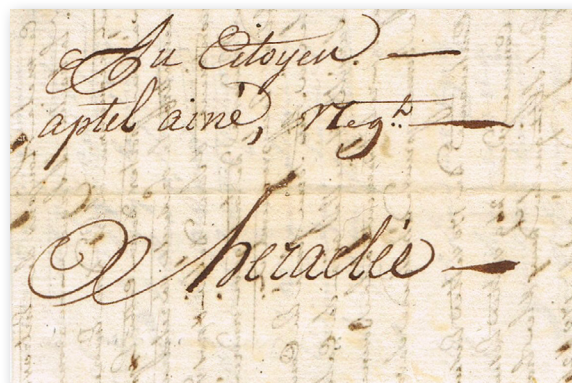 Au Citoyen. —
aptel ainé, Neg.t —
heraclée —